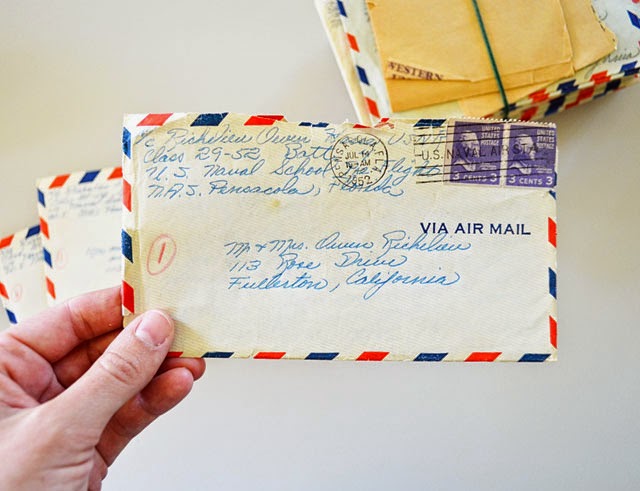 WESTERN
Richelieu Owen
Class 29-52 Batt Flight
U.S. Naval School Pre
N.A.S. Pensacola, Florida
JUL 1
AM
1952
U.S. NAVAL AIR STA
UNITED STATES POSTAGE
UNITED STATES POSTAGE
3 CENTS 3
3 CENTS 3
VIA AIR MAIL
1
Mr & Mrs. Owen Richelieu
113 Rose Drive
Fullerton, California